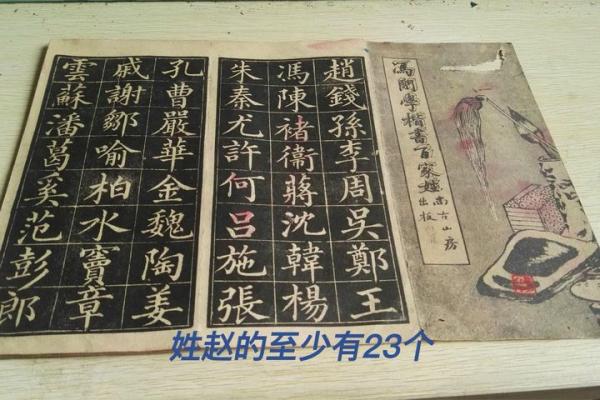 學楷書百家姓
尚古山房
出版
趙錢孫李周吳鄭王
馮陳褚衛蔣沈韓楊
朱秦尤許何吕施張
孔曹嚴華金魏陶姜
戚謝鄒喻柏水竇章
雲蘇潘葛奚范彭郎
姓赵的至少有23个